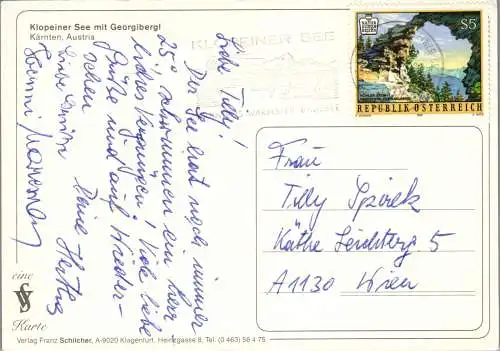 Klopeiner See mit Georgibergl
Kärnten, Austria
Liebe Tilly!
Der See hat noch immer
25° schwimmen ein herr-
liches Vergnügen! Viele liebe
Grüße und auf Wieder-
sehen Deine Hertha
Liebe Grüße
KLOPEINER SEE
WÄRMSTER BADESEE
S5
REPUBLIK ÖSTERREICH
Frau
Tilly
Käthe Leichterg. 5
A1130 Wien
eine
VS
Karte
Verlag Franz Schilcher, A-9020 Klagenfurt, Heinzgasse 8, Tel. (0 463) 56 4 75